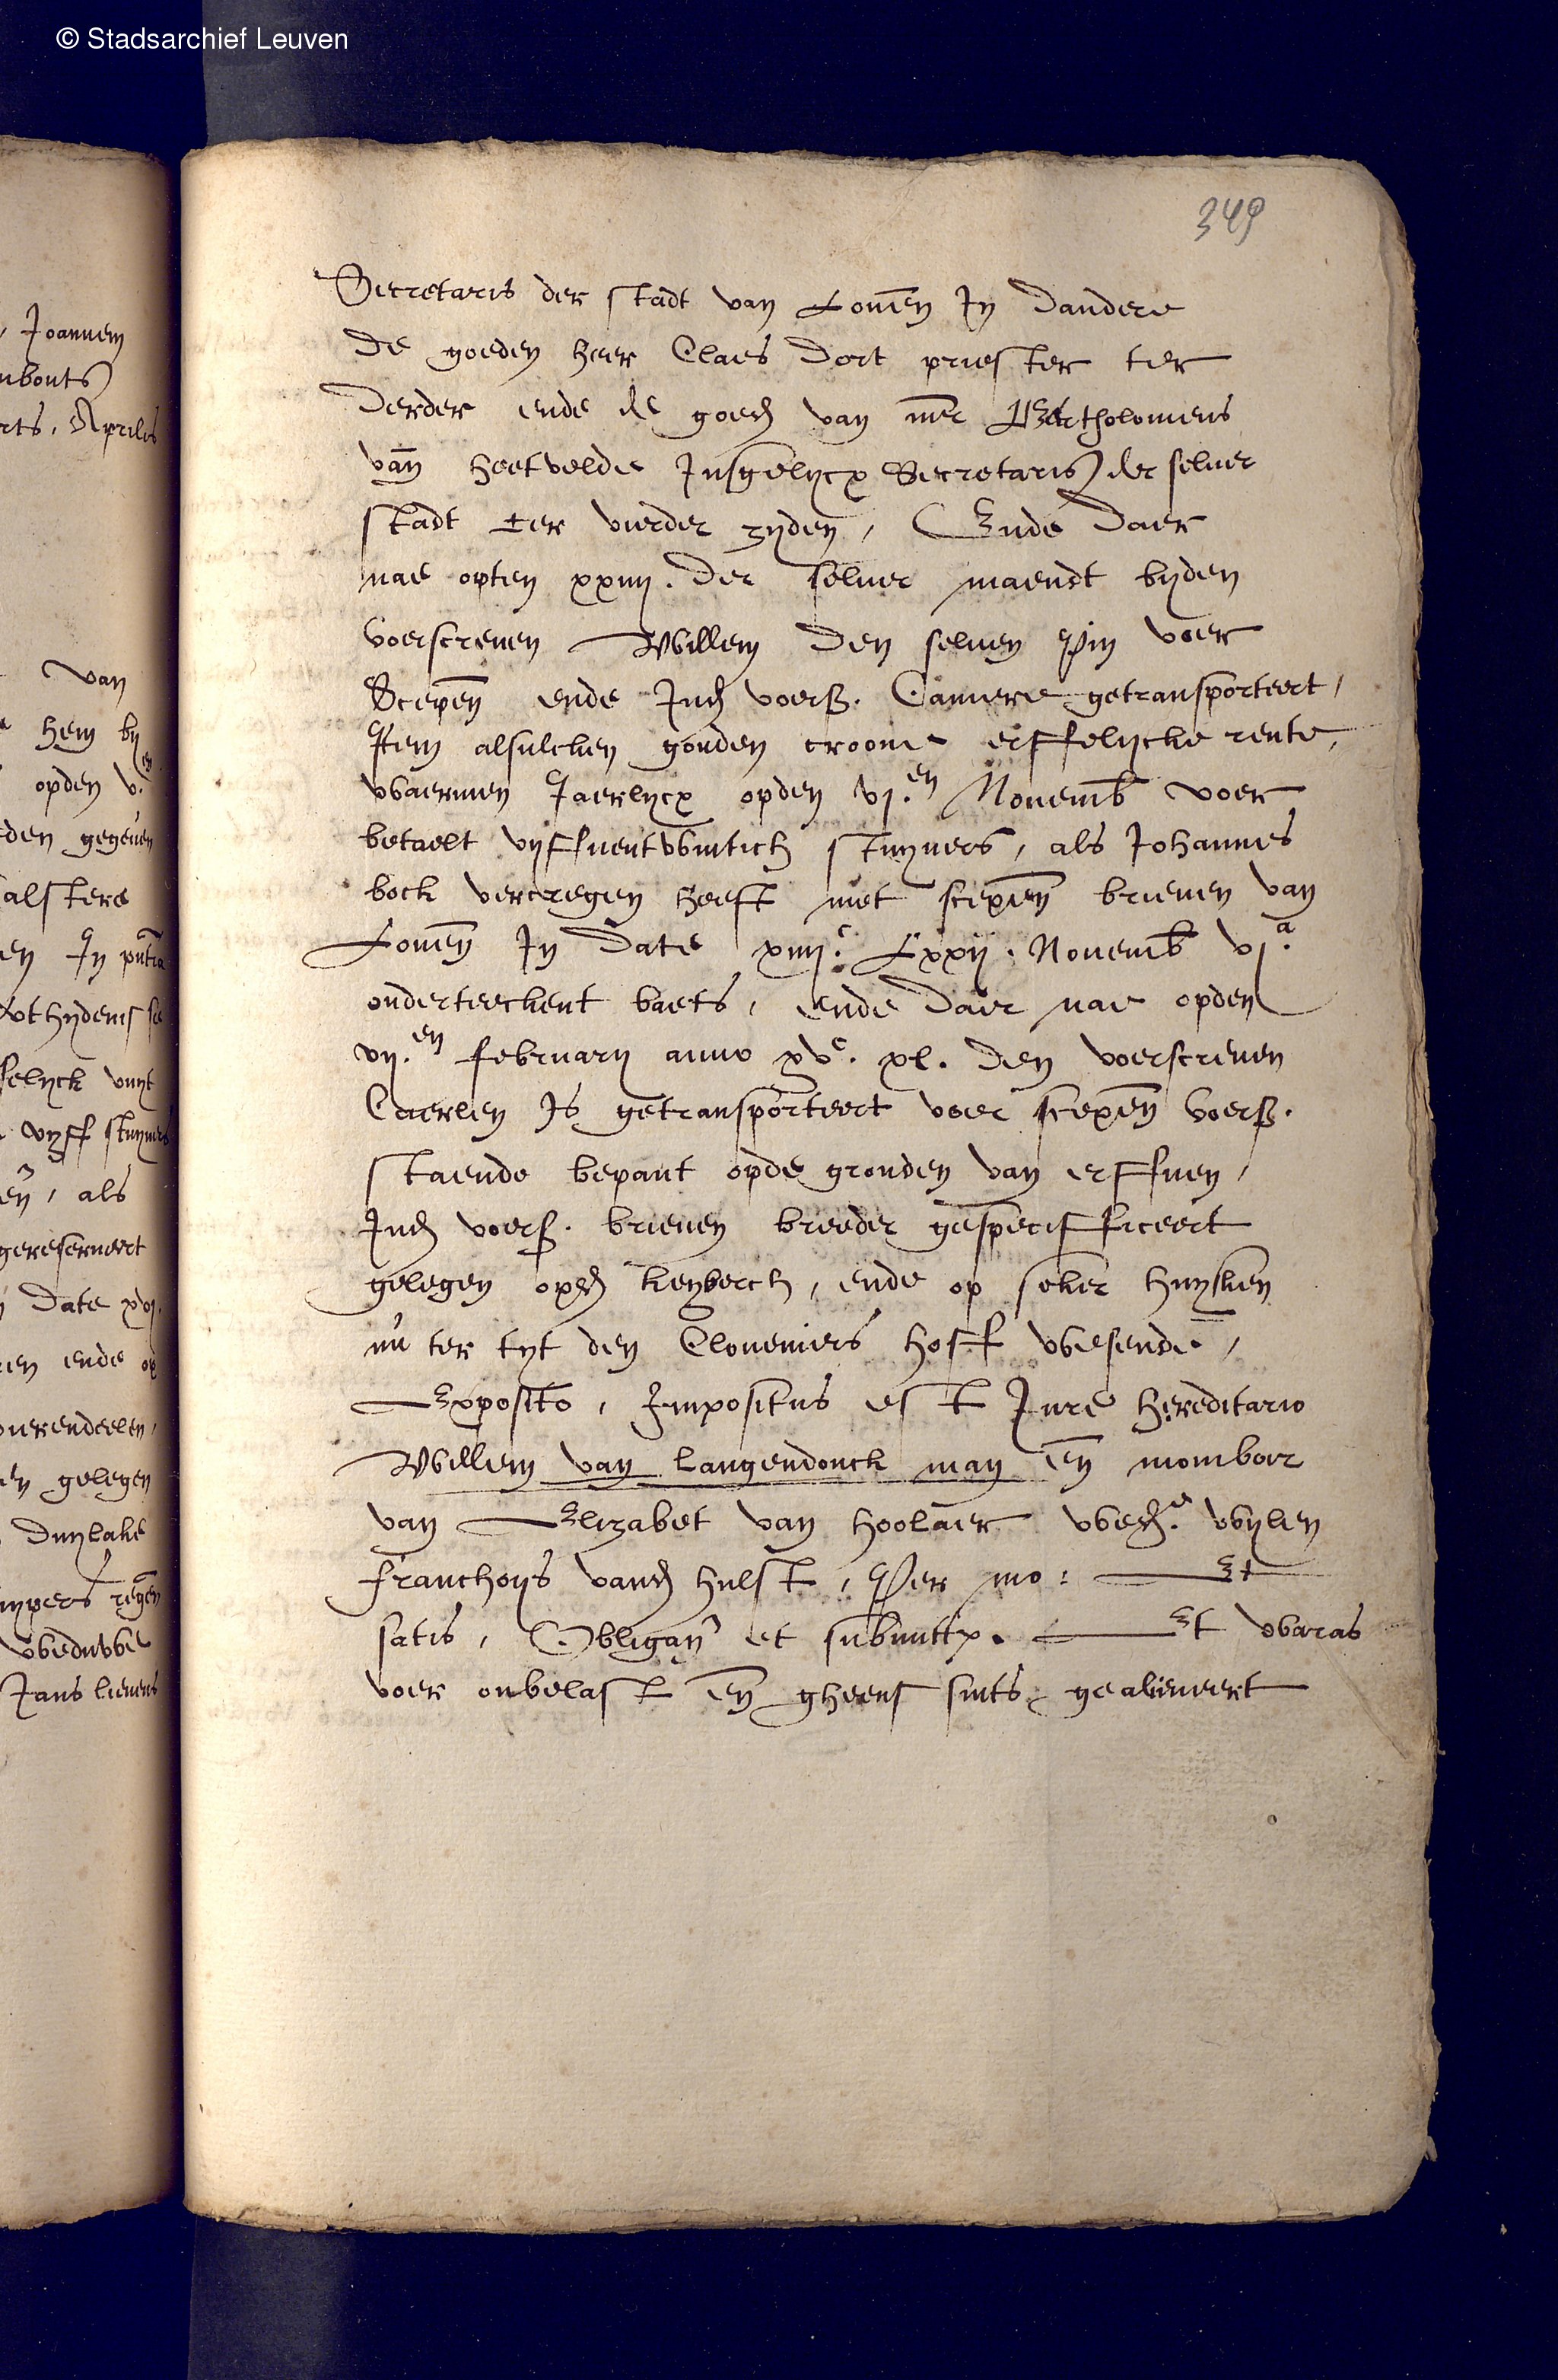 © Stadsarchief Leuven
349
Secretaris der stadt van Louen In dandere
de goeden heer Claes Dort priester ter
derder ende de goed van mr Bartholomeus
van heetvelde Insgelycx Secretaris der seluer
stadt ter vierder zyden, Ende daer
nae opten xxiiij. der seluer maendt byden
voerscreuen Willem den seluen Pin voer
Scepen ende Ind voers. Camere getransporteert,
Item alsulcken gouden croone erffelycke rente,
waermen Jaerlycx opden vj.en Nouemb voer
betaelt vyffuentwintich stuyuers, als Johannes
bock vercregen heeft met scepen brieuen van
Louen In date xiiij.c Lxxij. Nouemb vj.a
onderteeckent baets, ende dair nae opden
vij.en february anno xvc. xl. den voerscreuen
Caerlen Is getransporteert voer scepen voers.
staende bepant opde gronden van erffuen,
Ind voers. brieuen breeder gespecifficeert
gelegen opd keyberch, ende op seker huysken
nu ter tyt den Cloueniers hoff wesende,
Exposito, Impositus est Jure hereditario
Willem van Langendonck man en mombor
van Elizabet van hoolaer wed.e wylen
franchoys vand hulst, Per mo: Et
satis, Obligan et submittx. Et waras
voer onbelast en gheens sints gealieneert
Joannem
nbouts
rts, Aprilis
van
hem by
opden v.en
den gegeuen
alstere
en In pntia
felyck vuyt
vyff stuyuers
en, als
gereserueert
date xvj.
en ende op
ouerendeelen,
en gelegen
duylake
uypers regen
weduwe
Jans lieuens